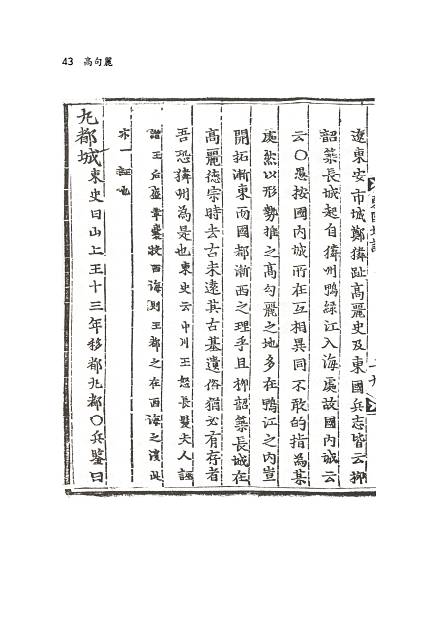 43 高句麗
遼東安市城鄭獜趾高麗史及東國兵志皆云柳
韶築長城起自獜州鴨綠江入海處故國內城云
云〇愚按國內城所在互相異同不敢的指為某
處然以形勢推之高勾麗之地多在鴨江之內豈
開拓漸東而國都漸西之理乎且柳韶築長城在
高麗德宗時去古未遠其古基遺俗猶必有存者
吾恐獜州為是也東史云中川王怒長髮夫人誣
譖王后盛韋囊投西海則王都之在西海之濱此
亦一証也
九都城東史曰山上王十三年移都九都〇兵鑒曰